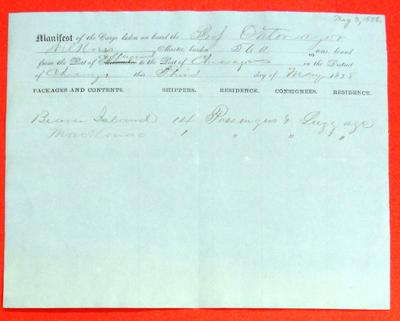 May 3, 1858.
Manifest of the Cargo laden on board the Prop Ontonagon
Master burden 560 tons, bound
from the Port of to the Port of Chicago in the District
of Chicago this Third day of May 1858
PACKAGES AND CONTENTS. SHIPPERS. RESIDENCE. CONSIGNEES. RESIDENCE.
Beaver Island 14 Passengers & Luggage
Mackinac 1 " " "